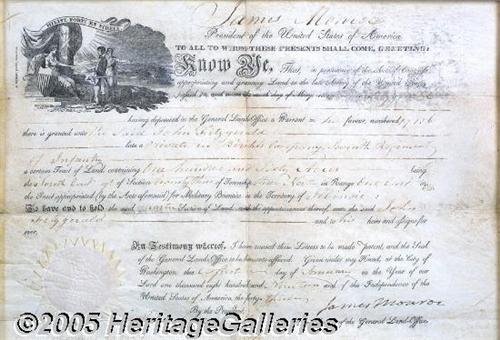 James Monroe
President of the United States of America
TO ALL TO WHOM THESE PRESENTS SHALL COME, GREETING:
Know Ye, That, in pursuance of the Acts of Congress
appropriating and granting Land to the late Army of the United States
passed on and since the sixth day of May,
having deposited in the General Land Office a Warrant in his favor, numbered 17,136
there is granted unto the said John Fitzgerald
late a Private in Company Seventh Regiment
of Infantry
a certain Tract of Land, containing One hundred and sixty Acres being
the South East qr of Section twenty three of Township two North in Range One east
the Tract appropriated (by the Acts aforesaid) for Military Bounties in the Territory of Illinois
To have and to hold the said quarter Section of Land, with the appurtenances thereof, unto the said John
Fitzgerald and to his heirs and assigns for
ever.
In Testimony whereof, I have caused these Letters to be made Patent, and the Seal
of the General Land Office to be hereunto affixed. Given under my Hand, at the City of
Washington, this first day of January in the Year of our
Lord one thousand eight hundred and Nineteen and of the Independence of the
United States of America, the forty third
By the President, James Monroe
of the General Land Office.
©2005 HeritageGalleries